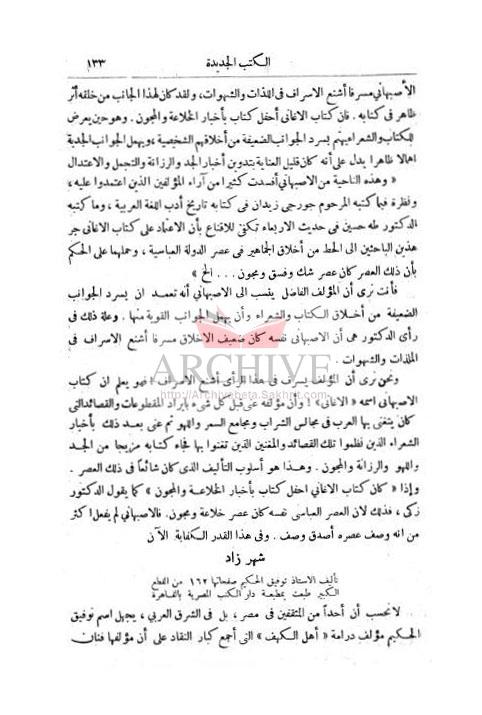 الكتب الجديدة ١٣٣
الأصبهاني مسرفا أشنع الاسراف في اللذات والشهوات، ولقد كان لهذا الجانب من خلقه أثر
ظاهر في كتابه . فان كتاب الاغاني أحفل كتاب بأخبار الخلاعة والمجون . وهو حين يعرض
للكتاب والشعراء يهتم بسرد الجوانب الضعيفة من أخلاقهم الشخصية ، ويهمل الجوانب الجدية
اهمالا ظاهرا يدل على أنه كان قليل العناية بتدوين أخبار الجد والرزانة والتجمل والاعتدال
« وهذه الناحية من الاصبهاني أفسدت كثيرا من آراء المؤلفين الذين اعتمدوا عليه،
ونظرة فيما كتبه المرحوم جورجي زيدان في كتابه تاريخ أدب اللغة العربية ، وما كتبه
الدكتور طه حسين في حديث الاربعاء تكفي للاقناع بأن الاعتماد على كتاب الاغاني جر
هذين الباحثين الى الحط من أخلاق الجماهير في عصر الدولة العباسية ، وحملهما على الحكم
بأن ذلك العصر كان عصر شك وفسق ومجون ... الخ »
فأنت ترى أن المؤلف الفاضل ينسب الى الاصبهاني أنه تعمد ان يسرد الجوانب
الضعيفة من أخلاق الكتاب والشعراء وأن يهمل الجوانب القوية منها . وعلة ذلك في
رأى الدكتور هي أن الاصبهاني نفسه كان ضعيف الاخلاق مسرفا أشنع الاسراف في
الملذات والشهوات .
ونحن نرى أن المؤلف يسرف في هذا الرأى أشنع الاسراف ! فهو يعلم ان كتاب
الاصبهاني اسمه « الاغاني » ! وأن مؤلفه عنى قبل كل شيء بايراد المقطوعات والقصائد التي
كان يتغنى بها العرب في مجالس الشراب ومجامع السمر واللهو ثم عنى بعد ذلك بأخبار
الشعراء الذين نظموا تلك القصائد والمغنين الذين تغنوا بها فجاء كتابه مزيجا من الجد
واللهو والرزانة والمجون . وهذا هو أسلوب التأليف الذى كان شائعاً في ذلك العصر .
وإذا « كان كتاب الاغاني احفل كتاب بأخبار الخلاعة والمجون » كما يقول الدكتور
زكى ، فذلك لان العصر العباسي نفسه كان عصر خلاعة ومجون. فالاصبهاني لم يفعل اكثر
من انه وصف عصره أصدق وصف . وفي هذا القدر الكفاية الآن
شهر زاد
تأليف الاستاذ توفيق الحكيم صفحاتها ١٦٢ من القطع
الكبير طبعت بمطبعة دار الكتب المصرية بالقاهرة
لانحسب أن أحداً من المثقفين في مصر ، بل في الشرق العربي ، يجهل اسم توفيق
الحكيم مؤلف درامة « أهل الكهف » التي أجمع كبار النقاد على أن مؤلفها فنان
ARCHIVE
http://Archivebeta.Sakhrit.com